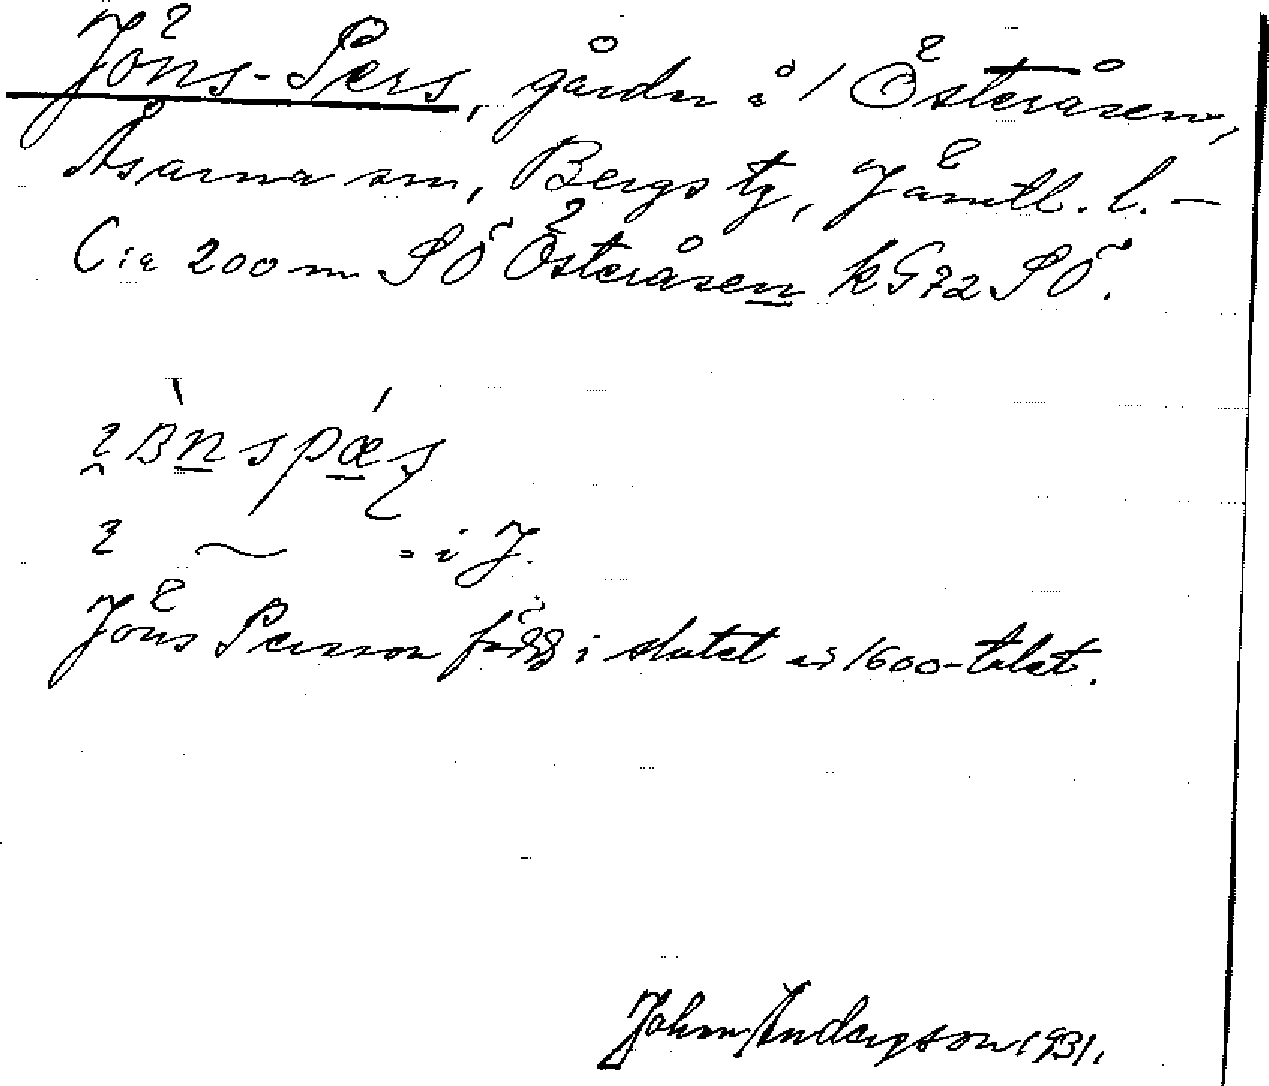 Jöns-Pers, gården å 1 Österåsen,
Åsarna sn, Bergs tg, Jämtl. l. –
C:a 200 m SÖ Österåsen kG72 SÖ.
= i J.
Jöns Persson född i slutet av 1600-talet.
John Anderzson 1931.